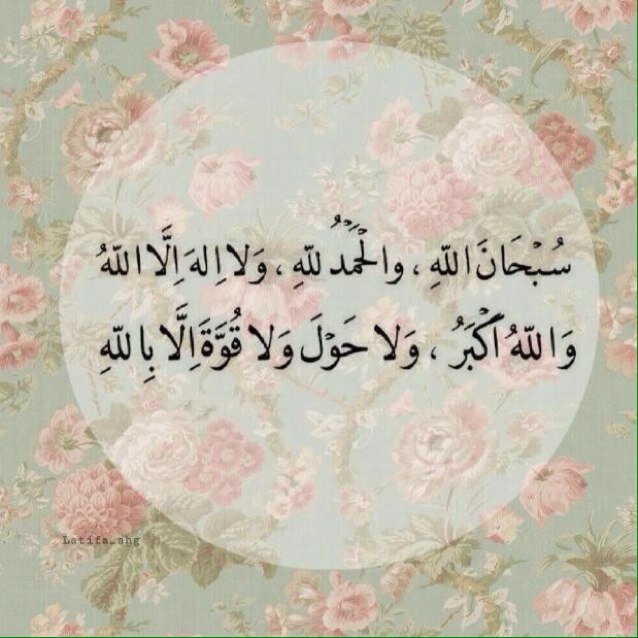 سُبْحَانَ اللّٰهِ ، والْحَمْدُ للّٰهِ ، وَلا اِلهَ اِلَّا اللّٰهُ
وَاللّٰهُ أَكْبَرُ ، وَلا حَوْلَ وَلا قُوَّةَ اِلَّا بِاللّٰهِ
Latifa_ahg